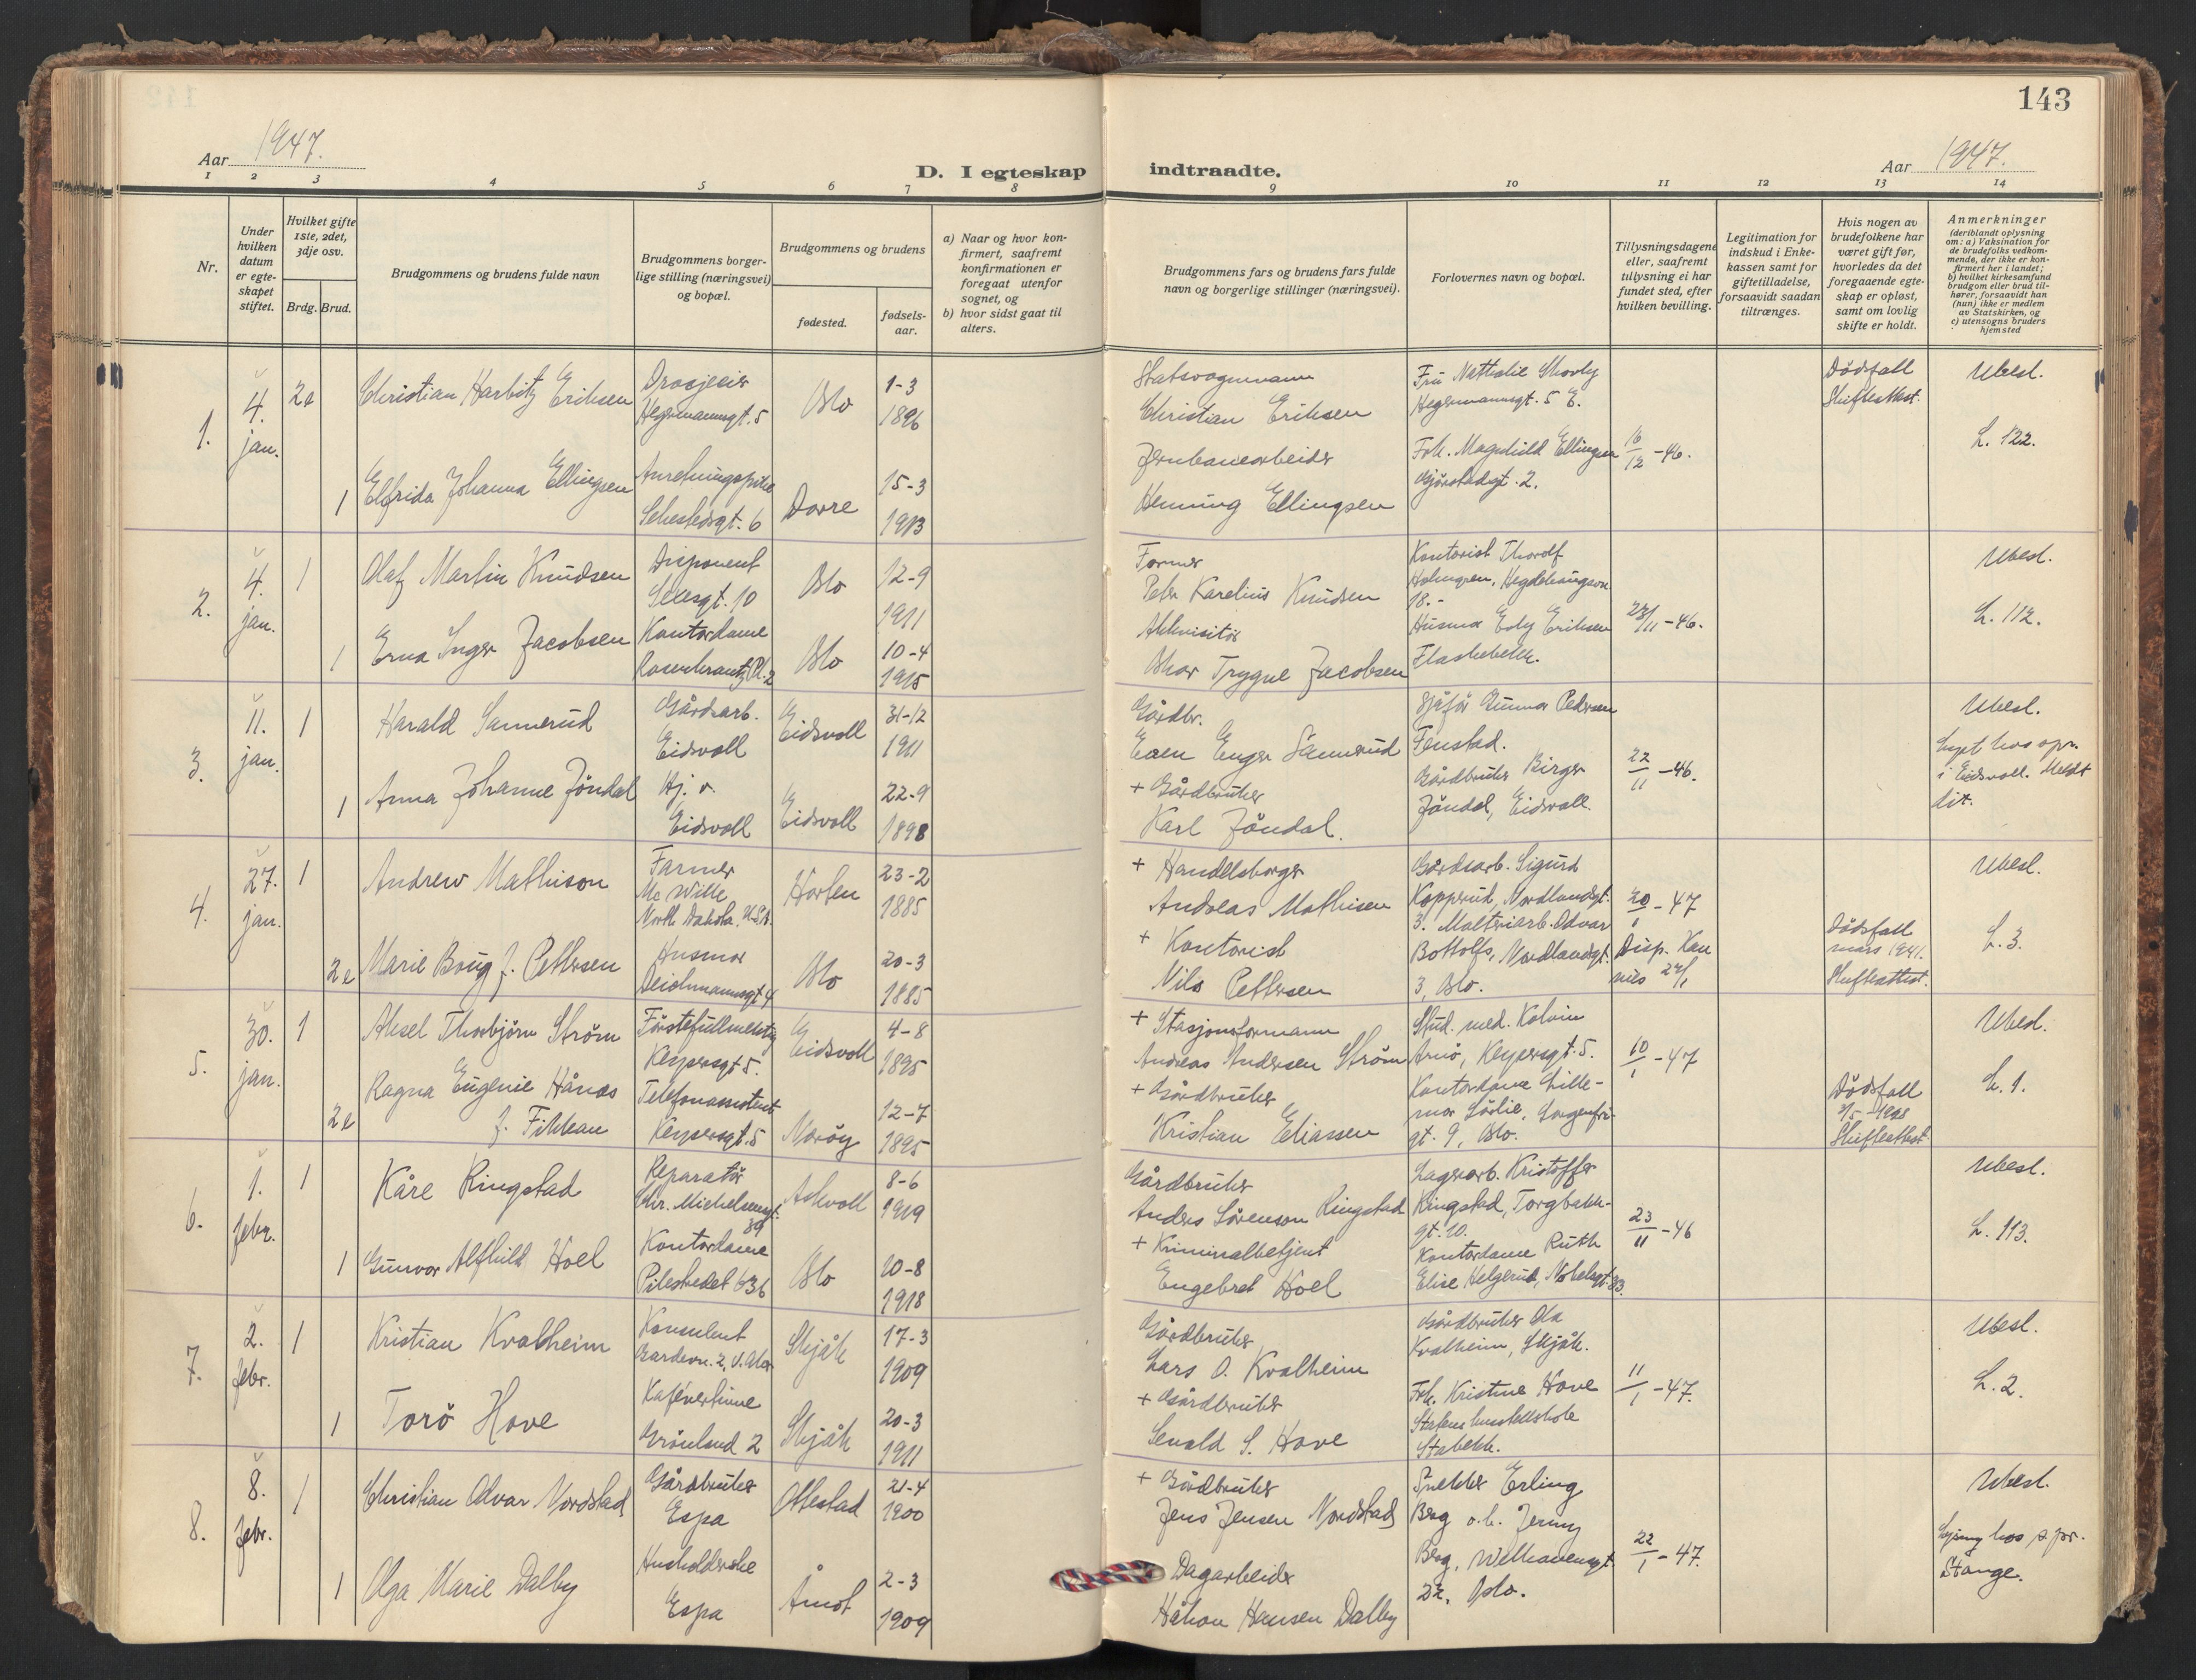 143
Aar 1947.
D. I egteskap indtraadte.
Aar 1947.
1 2 3 4 5 6 7 8 9 10 11 12 13 14
Nr.
Under hvilken datum er egteskapet stiftet.
Hvilket gifte 1ste, 2det, 3dje osv.
Brdg. Brud.
Brudgommens og brudens fulde navn
Brudgommens borgerlige stilling (næringsvei) og bopæl.
Brudgommens og brudens
fødested.
fødselsaar.
a) Naar og hvor konfirmert, saafremt konfirmationen er foregaat utenfor sognet, og
b) hvor sidst gaat til alters.
Brudgommens fars og brudens fars fulde navn og borgerlige stillinger (næringsvei).
Forlovernes navn og bopæl.
Tillysningsdagene eller, saafremt tillysning ei har fundet sted, efter hvilken bevilling.
Legitimation for indskud i Enkekassen samt for giftetilladelse, forsaavidt saadan tiltrænges.
Hvis nogen av brudefolkene har været gift før, hvorledes da det foregaaende egteskap er opløst, samt om lovlig skifte er holdt.
Anmerkninger (deriblandt oplysning om: a) Vaksination for de brudefolks vedkommende, der ikke er konfirmert her i landet; b) hvilket kirkesamfund brudgom eller brud tilhører, forsaavidt han (hun) ikke er medlem av Statskirken, og c) utensogns bruders hjemsted
1. 4. jan. 2e Christian Harbitz Eriksen Drosjeeier Hegermannsgt. 5 Oslo 1-3 1896
Christian Eriksen Fru Nathalie Hegermannsgt. 5 E. Dødsfall Skifteattest. Ubesl.
1 Elfrida Johanna Ellingsen Sehestedsgt. 6 Dovre 15-3 1913
Jernbanearbeider Henning Ellingsen Frk. Magnhild Ellingsen 16/12 -46. L. 122.
2. 4. jan. 1 Olaf Martin Knudsen Disponent 10 Oslo 12-9 1911
Farmer Peder Karelius Knudsen Kontorist Thorolf Holmgren, 18.- Ubesl.
1 Erna Inger Jacobsen Kontordame Rosenkrantz Pl. 2 Oslo 10-4 1915
Akkvisitør Oskar Trygve Jacobsen Husmor Esly Eriksen Flaskebekk. 23/11 -46. L. 112.
3. 11. jan. 1 Harald Sannerud Gårdsarb. Eidsvoll Eidsvoll 31-12 1911
Gårdbr. Even Enger Sannerud Sjåfør Gunnar Pedersen Fenstad. Ubesl.
1 Anna Johanne Jøndal Hj. v. Eidsvoll Eidsvoll 22-9 1898
+ Gårdbruker Karl Jøndal. Gårdbruker Birger Jøndal, Eidsvoll. 22/11 -46. Lyst hos spr. i Eidsvoll. Meldt dit.
4. 27. jan. 1 Andrew Mathison Farmer Mc Ville North Dakota, U.S.A. Horten 23-2 1885
+ Handelsborger Andreas Mathisen Gårdsarb. Sigurd Kopperud, Nordlandsgt. 3. 20/1 -47 Ubesl.
2e Marie Boug f. Pettersen Husmor Deichmannsgt 4 Oslo 20-3 1885
+ Kontorist Nils Pettersen Malteriarb. Odvar Bottolfs, Nordlandgt. 3, Oslo. Disp. Dødsfall mars 1941. Skifteattest. L. 3.
5. 30. jan. 1 Aksel Thorbjørn Strøm Førstefullmektig Keysersgt 5. Eidsvoll 4-8 1895
+ Stasjonsformann Andreas Andersen Strøm Stud. med. Kolbein Arnø, Keysersgt. 5. 10/1 -47 Ubesl.
2e Ragna Eugenie Hånes f. Telefonassistent Keysersgt. 5 Nærøy 12-7 1895
+ Gårdbruker Kristian Eliassen Kontordame Lillemor Lørlie, Sorgenfrigt. 9, Oslo. Dødsfall Skifteattest. L. 1.
6. 1. febr. 1 Kåre Ringstad Reparatør Chr. Michelsensgt. 39 Askvoll 8-6 1919
Gårdbruker Anders Sørenson Ringstad Lagerarb. Kristoffer Ringstad, Torgbakkgt. 10. 23/11 -46 Ubesl.
1 Gunvor Alfhild Hoel Kontordame Pilestredet 63b Oslo 20-8 1918
+ Kriminalbetjent Engebret Hoel Kontordame Ruth Elise Helgerud, Nobelsgt. 33. L. 113.
7. 2. febr. 1 Kristian Kvalheim Konsulent V. Aker Skjåk 17-3 1909
Gårdbruker Lars O. Kvalheim Gårdbruker Ola Kvalheim, Skjåk. 11/1 -47. Ubesl.
1 Torø Hove Kafévertinne Grønland 2 Skjåk 20-3 1911
+ Gårdbruker S. Hove Frk. Kristine Hove Statens husstellskole Stabekk. L. 2.
8. 8. febr. 1 Christian Odvar Nordstad Gårdbruker Espa Ottestad 21-4 1900
+ Gårdbruker Jens Jensen Nordstad Snekker Erling Berg o.h. Jenny Berg, Welhavensgt. 22, Oslo. 22/1 -47. Ubesl.
1 Olga Marie Dalby Husholderske Espa Åmot 2-3 1909
Dagarbeider Håkon Hansen Dalby Lysing hos s.pr. Stange.